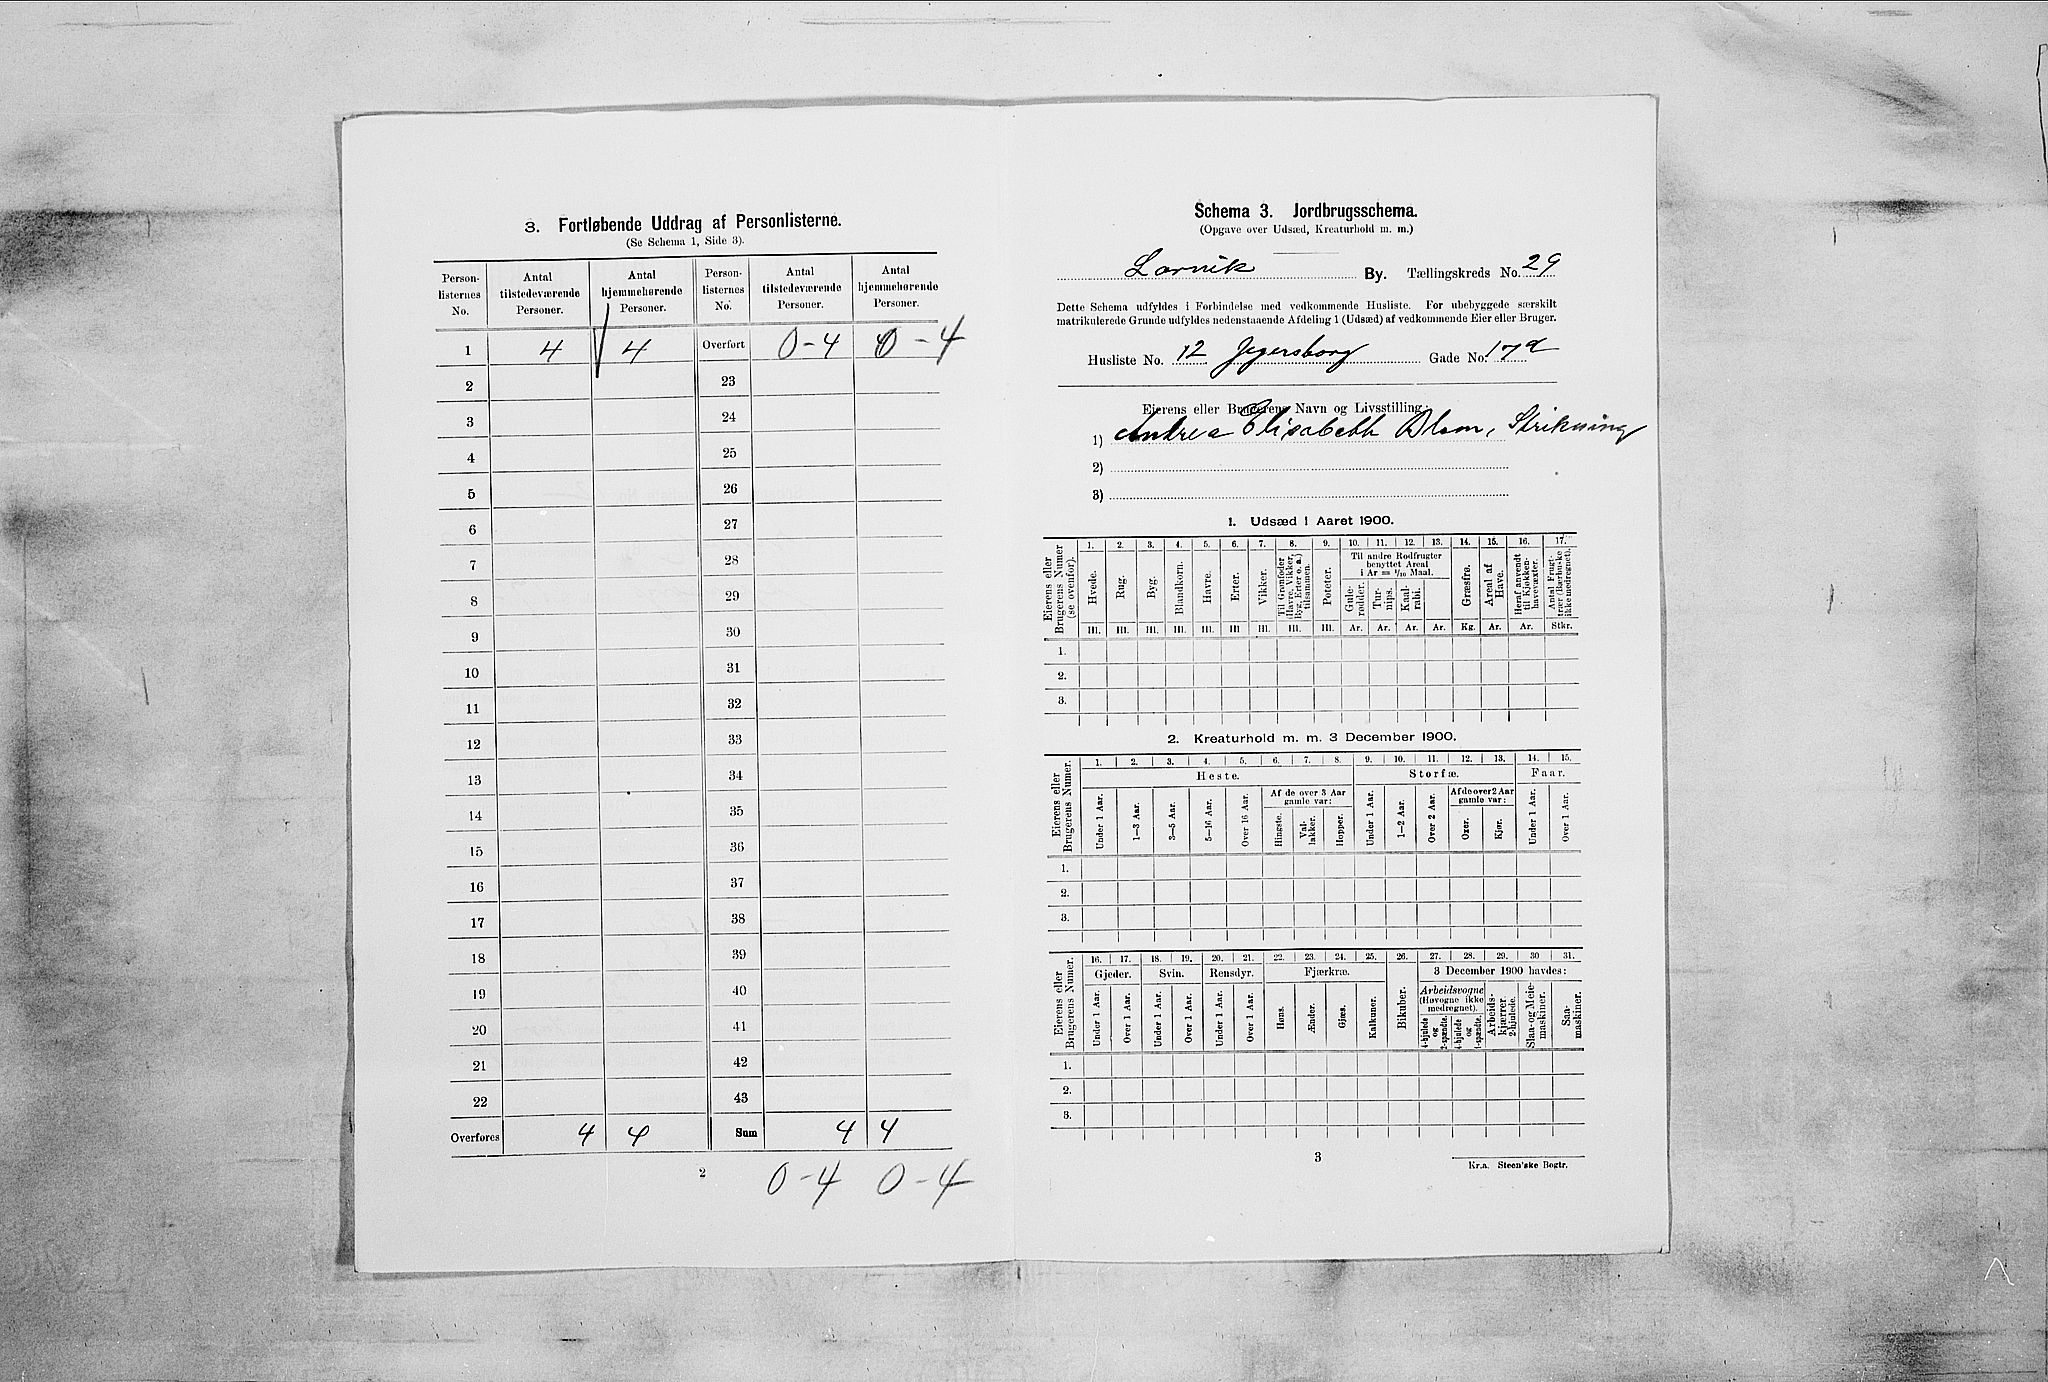 3. Fortløbende Uddrag af Personlisterne.
(Se Schema 1, Side 3).
Person-listernes No. | Antal tilstedeværende Personer. | Antal hjemmehørende Personer. | Person-listernes No. | Antal tilstedeværende Personer. | Antal hjemmehørende Personer.
1 | 4 | 4 | Overført | 0-4 | 0-4
2 | 23
3 | 24
4 | 25
5 | 26
6 | 27
7 | 28
8 | 29
9 | 30
10 | 31
11 | 32
12 | 33
13 | 34
14 | 35
15 | 36
16 | 37
17 | 38
18 | 39
19 | 40
20 | 41
21 | 42
22 | 43
Overføres | 4 | 4 | Sum | 4 | 4
2
0-4 0-4
Schema 3. Jordbrugsschema.
(Opgave over Udsæd, Kreaturhold m. m.)
Larvik By. Tællingskreds No. 29
Dette Schema udfyldes i Forbindelse med vedkommende Husliste. For ubebyggede særskilt
matrikulerede Grunde udfyldes nedenstaaende Afdeling 1 (Udsæd) af vedkommende Eier eller Bruger.
Husliste No. 12 Jegersborg Gade No. 17d
Eierens eller Brugerens Navn og Livsstilling:
1) Andrea Elisabeth Blom, Strikning
2)
3)
1. Udsæd i Aaret 1900.
Eierens eller Brugerens Numer (se ovenfor).
1. 2. 3. 4. 5. 6. 7. 8. 9. 10. 11. 12. 13. 14. 15. 16. 17.
Hvede. Rug. Byg. Blandkorn. Havre. Erter. Vikker. Til Grønfoder (Havre, Vikker, Byg, Erter o. a.) tilsammen. Poteter.
Til andre Rodfrugter benyttet Areal i Ar = 1/10 Maal.
Gule-rødder. Tur-nips. Kaal-rabi. Græsfrø. Areal af Have. Heraf anvendt til Kjøkken-havevæxter. Antal Frugt-trær (Bærbuske ikke medregnet).
Hl. Hl. Hl. Hl. Hl. Hl Hl. Hl. Hl. Ar. Ar. Ar. Ar. Kg. Ar. Ar. Stkr.
1.
2.
3.
2. Kreaturhold m. m. 3 December 1900.
Eierens eller Brugerens Numer.
1. 2. 3. 4. 5. 6. 7. 8. 9. 10. 11. 12. 13. 14. 15.
Heste. Storfæ. Faar.
Af de over 3 Aar gamle var: Af de over 2 Aar gamle var:
Under 1 Aar. 1—3 Aar. 3—5 Aar. 5—16 Aar. Over 16 Aar. Hingste. Val-lakker. Hopper. Under 1 Aar. 1—2 Aar. Over 2 Aar. Oxer. Kjør. Under 1 Aar. Over 1 Aar.
1.
2.
3.
Eierens eller Brugerens Numer.
16. 17. 18. 19. 20. 21. 22. 23. 24. 25. 26. 27. 28. 29. 30 31.
Gjeder. Svin. Rensdyr. Fjærkræ. Bikuber. 3 December 1900 havdes:
Arbeidsvogne (Høvogne ikke medregnet).
Under 1 Aar. Over 1 Aar. Under 1 Aar. Over 1 Aar. Under 1 Aar. Over 1 Aar. Høns. Ænder. Gjæs. Kalkuner. 4-hjulede og 2-spændte. 4-hjulede og 1-spændte. Arbeids-kjærrer, 2-hjulede. Slaa- og Meie-maskiner. Saa-maskiner.
1.
2.
3.
3
Kr.a. Steen'ske Bogtr.